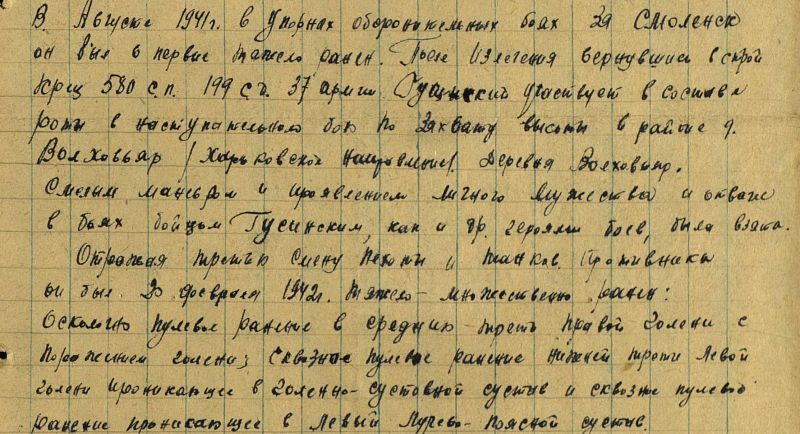 В Августе 1941г. в упорных оборонительных боях за Смоленск
он был в первые тяжело ранен. После излегения вернувшись в строй
Креч 580 с.п. 199 с.д. 37 армии Гусинский участвует в составе
роты в наступательном бою по захвату высоты в районе д.
Волховьяр /Харьковское направление/. Деревня Волховьяр.
Смелым маневром и проявлением личного мужества и отваги
в боях бойцом Гусинским, как и др. героями боев, была взята.
Отражая третью смену пехоты и танков противника
он был 20 февраля 1942г. тяжело-множественно ранен:
Осколочно пулевое ранение в среднюю треть правой голени с
поражением голени; сквозное пулевое ранение нижней трети левой
голени проникающее в голенно-суставной сустав и сквозное пулевое
ранение проникающее в левый поясной сустав.